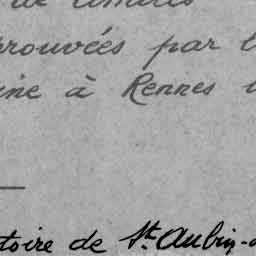 rouvées par l
ine à Rennes
toire de St. Aubin-